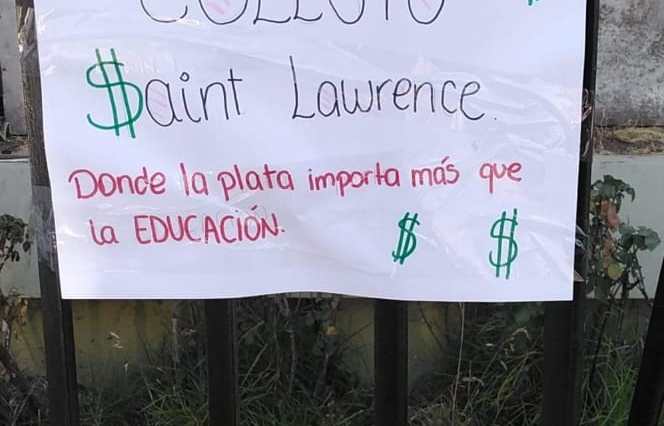 COLEGIO
$aint Lawrence.
Donde la plata importa más que
la EDUCACIÓN.
$ $